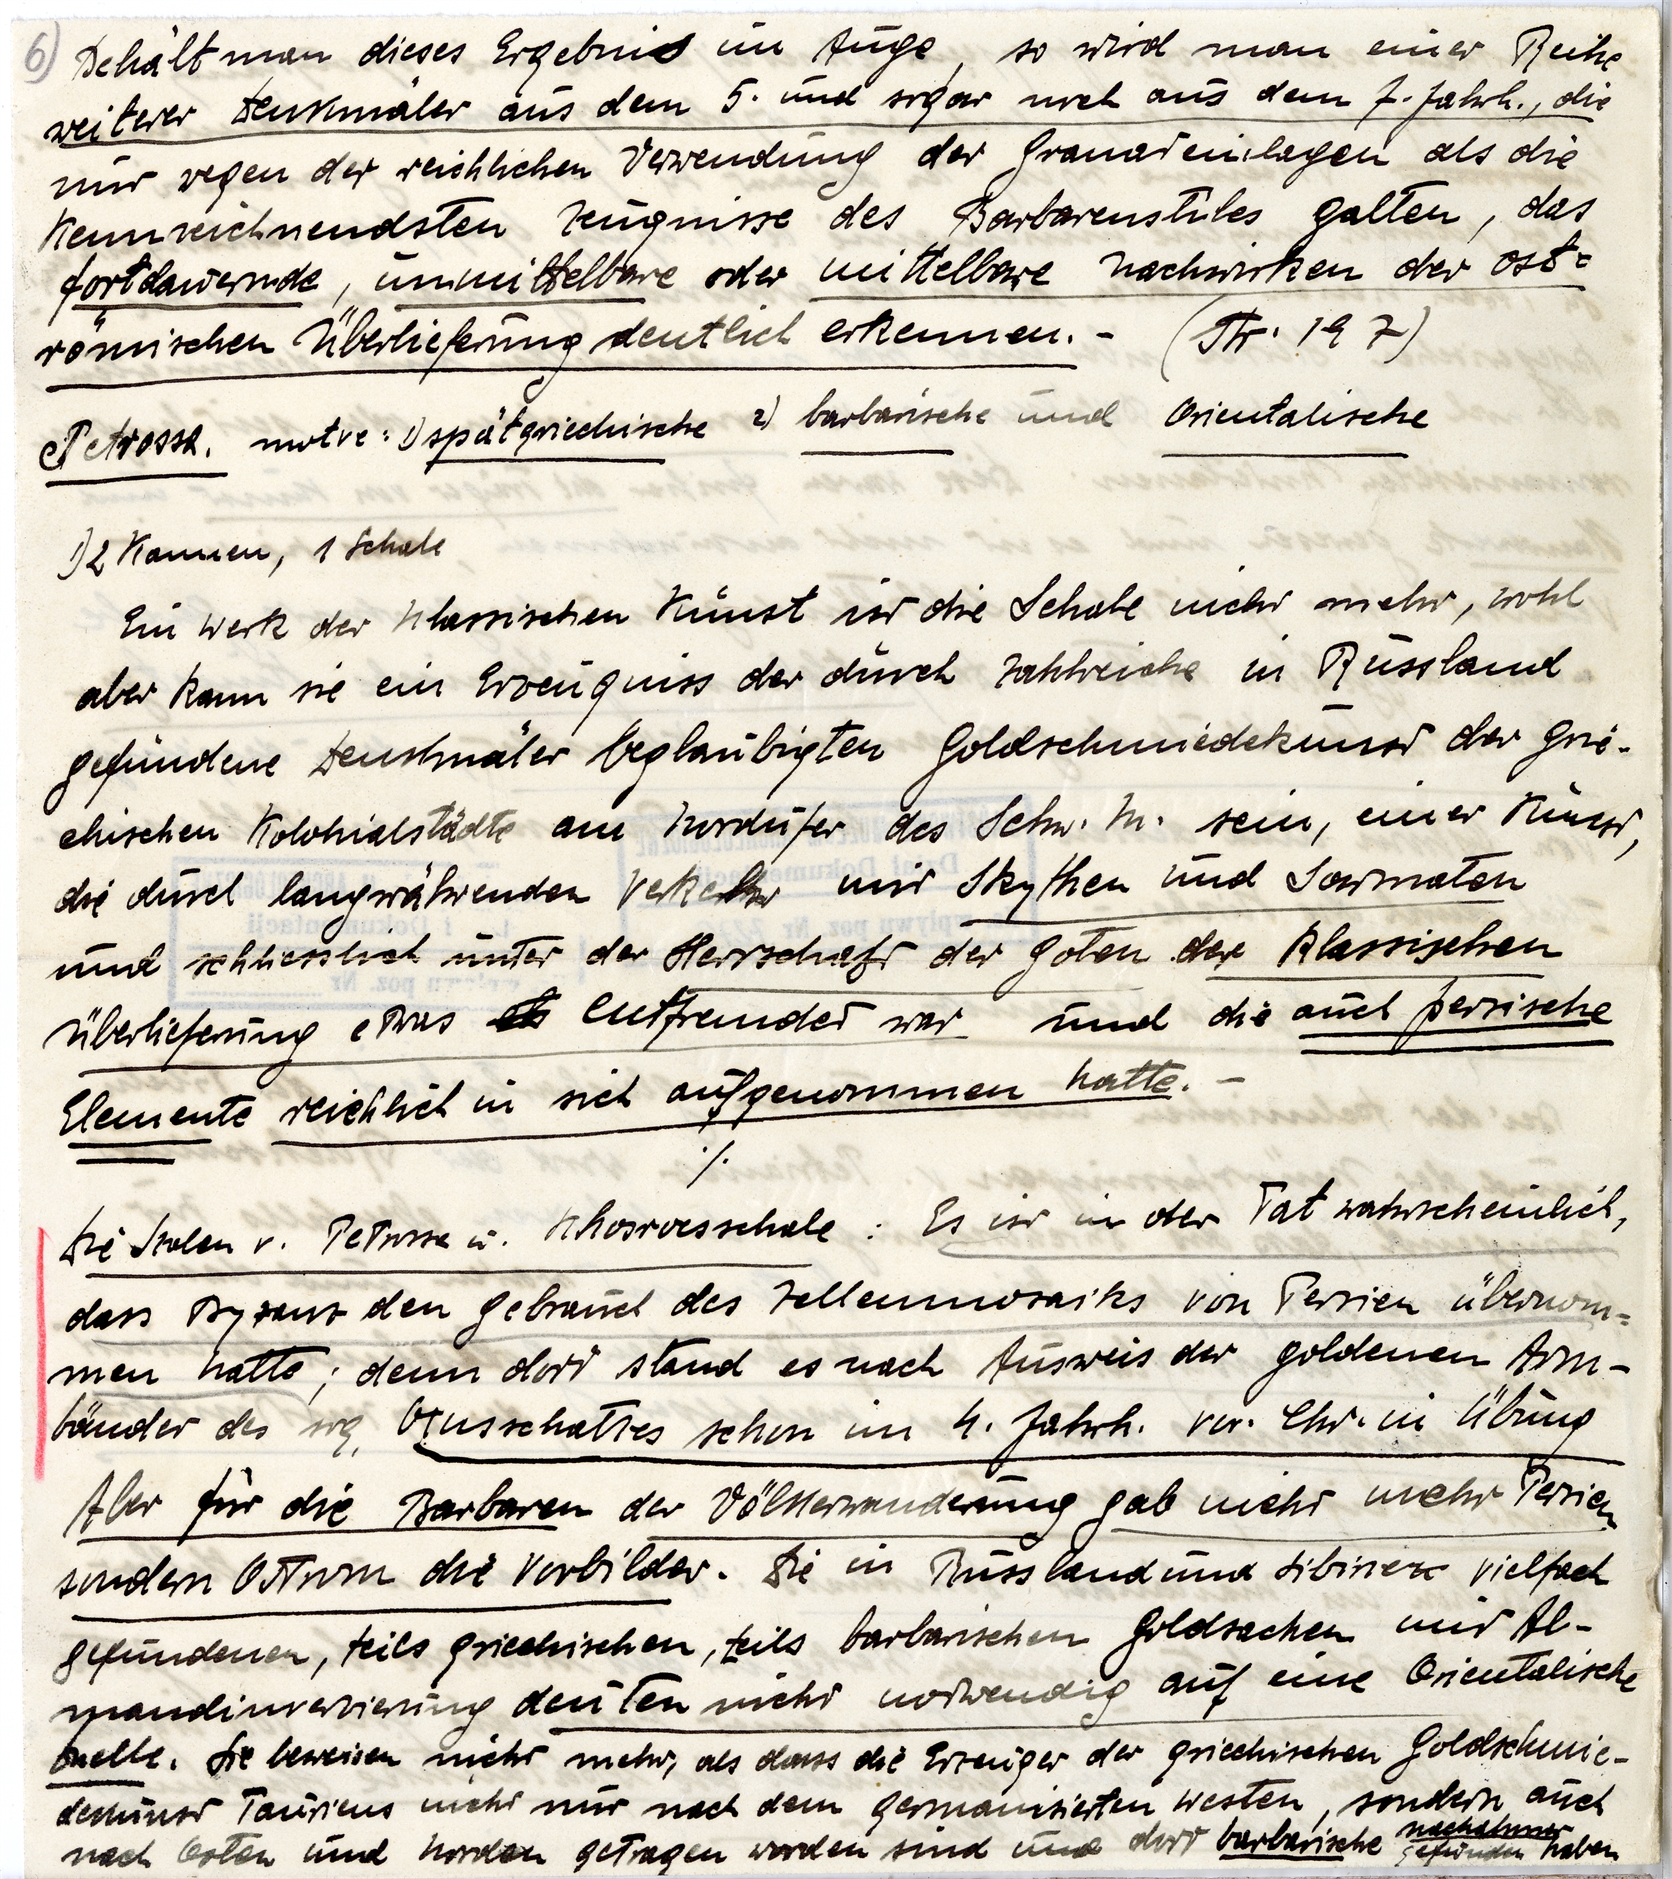 6) Behält man dieses Ergebnis im Auge, so wird man einer Reihe
weiterer Denkmäler aus dem 5. und sogar noch aus dem 7. Jahrh., die
nur wegen der reichlichen Verwendung der Granateinlagen als die
Kennzeichnendsten Zeugnisse des Barbarenstiles galten, das
fortdauernde, unmittelbare oder mittelbare Nachwirken der ost=
römischen Überlieferung deutlich erkennen. – (Str. 197)
Petrossa. motve: 1) spätgriechische 2) barbarische und Orientalische
1) 2 Kannen, 1 Schale
Ein Werk der Klassischen Kunst ist die Schale nicht mehr, wohl
aber kann sie ein Erzeugniss der durch zahlreiche in Russland
gefundene Denkmäler beglaubigten Goldschmiedekunst der grie-
chischen Kolonialstädte am Nordufer des Schw. M. sein, einer Kunst,
die durch langwährenden Verkehr mit Skythen und Sarmaten
und schliesslich unter der Herrschaft der Goten der Klassischen
Überlieferung etwas entfremdet war und die auch persische
Elemente reichlich in sich aufgenommen hatte. –
./.
Die Schalen v. Petrossa u. Khosroesschale : Es ist in der Tat wahrscheinlich,
dass Byzanz den Gebrauch des Zellenmosaiks von Persien übernom=
men hatte; denn dort stand es nach Ausweis der goldenen Arm-
bänder des sog. Oxusschatzes schon im 4. Jahrh. vor. Chr. in Übung
Aber für die Barbaren der Völkerwanderung gab nicht mehr Persien
sondern Ostrom die Vorbilder. Die in Russland und Sibirien vielfach
gefundenen, teils griechischen, teils barbarischen Goldsachen mit Al-
mandinverzierung deuten nicht notwendig auf eine Orientalische
Quelle. Sie beweisen nicht mehr, als dass die Erzeuger der griechischen Goldschmie-
dekunst Tauriens nicht nur nach dem germanisierten Westen, sondern auch
nach Osten und Norden getragen worden sind und dort barbarische nachahmer
gefunden haben